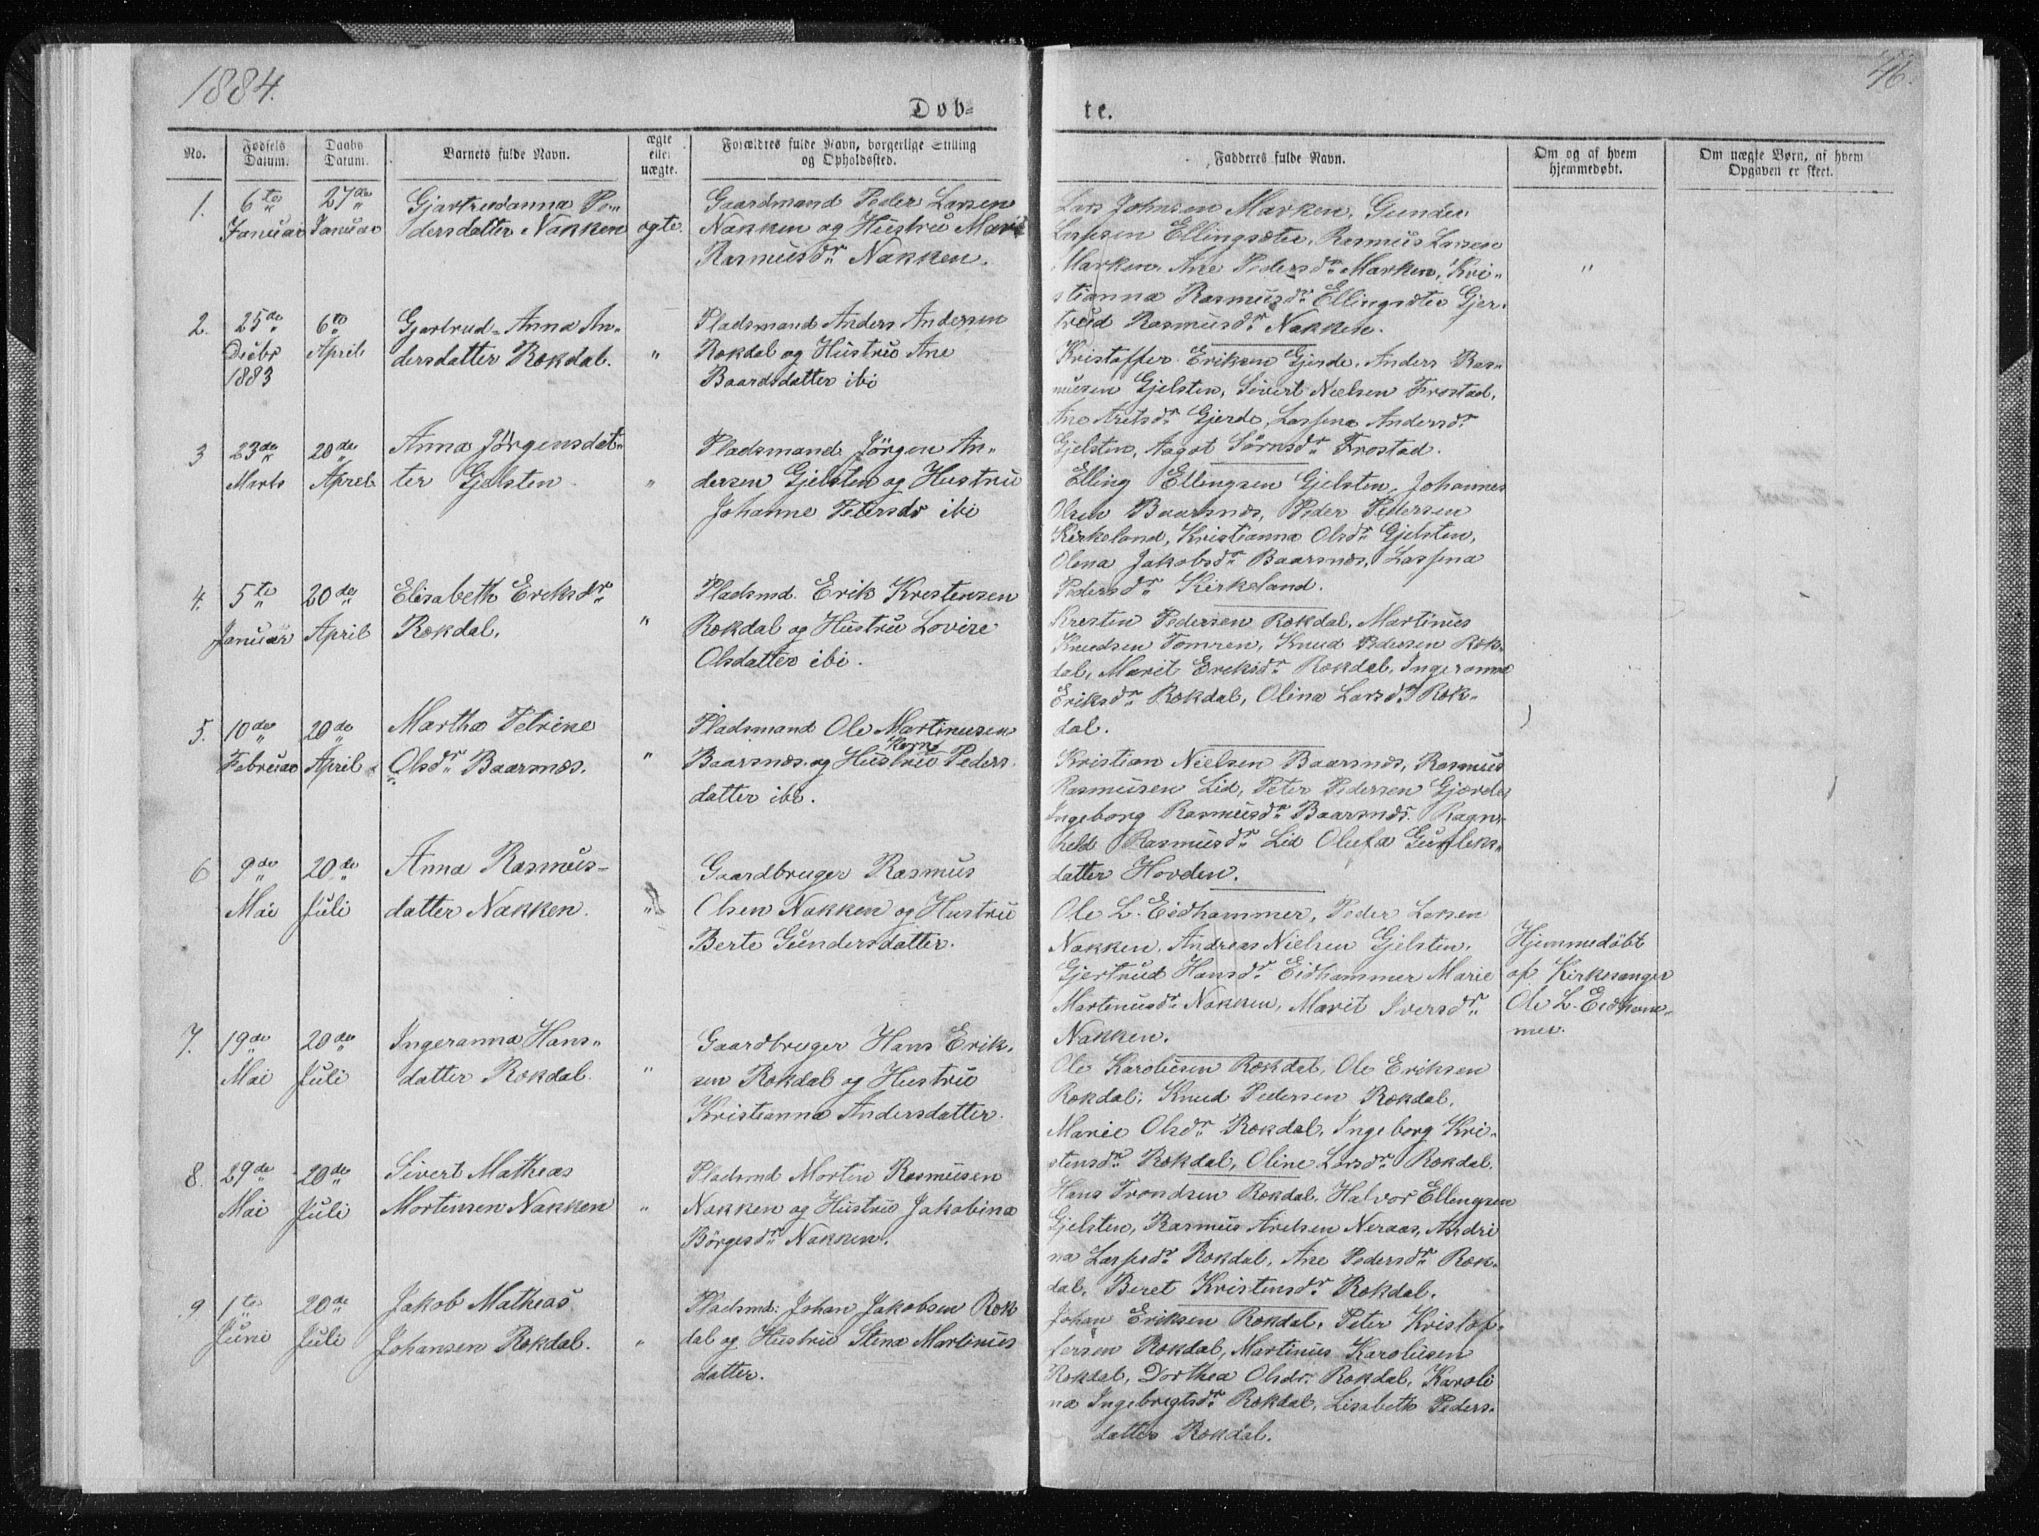 1884.
46.
Døb-
te.
No.
Fødsels Datum.
Daabs Datum.
Barnets fulde Navn.
ægte eller uægte.
Forældres fulde Navn, borgerlige Stilling og Opholdssted.
Fadderes fulde Navn.
Om og af hvem hjemmedøbt.
Om uægte Børn, af hvem Opgaven er skeet.
1.
6te Januar
27de Januar
Gjartrudanna Pe-
dersdatter Nakken
ægte
Gaardmand Peder Larsen
Nakken og Hustru Marit
Rasmusdr Nakken.
Lars Johnsen Marken, Gunder
Larsen Ellingsæter, Rasmus Larsen
Marken, Ane Pedersdr Marken, Kri-
stianna Rasmusdr Ellingsæter Gjer-
trud Rasmusdr Nakken.
"
2.
25de Decbr 1883
6te April
Gjertrud-Anna An-
dersdatter Rokdal.
"
Pladsmand Anders Andersen
Rokdal og Hustru Ane
Baardsdatter ibi
Kristoffer Eriksen Gjerde, Anders Ras-
musen Gjelsten, Sivert Nielsen Frostad,
Ane Aretsdr Gjerde, Lassina Andersdr
Gjelsten, Aagot Sørnsdr Frostad.
3
23de Marts
20de April
Anna Jørgensdat-
ter Gjelsten
"
Pladsmand Jørgen An-
dersen Gjelsten og Hustru
Johanne Petersdr ibi
Elling Ellingsen Gjelsten, Johannes
Olsen Baarsnæs, Peder Pedersen
Kirkeland, Kristianna Olsdr Gjelsten,
Olena Jakobsdr Baarsnæs, Lassina
Pedersdr Kirkeland.
4.
5te Januar
20de April
Elisabeth Eriksdr
Rokdal.
"
Pladsmd. Erik Kristensen
Rokdal og Hustru Lovise
Olsdatter ibi.
Kresten Pedersen Rokdal, Martinus
Knudsen Tomren, Knud Pedersen Rok-
dal, Marit Eriksdr Rokdal, Ingeranna
Eriksdr Rokdal, Olina Larsdr Rok-
dal.
5.
10de Februar
20de April
Martha Petrine
Olsdr Baarsnæs.
"
Pladsmand Ole Martinusen
Baarsnæs og Hustru Karn Peders-
datter ibi.
Kristian Nielsen Baarsnæs, Rasmus
Rasmusen Lid, Peter Pedersen Gjærde,
Ingeborg Rasmusdr Baarsnæs, Ragn-
hild Rasmusdr Lid Olufa Gunleks-
datter Hovden.
6
9de Mai
20de Juli
Anna Rasmus-
datter Nakken.
"
Gaardbruger Rasmus
Olsen Nakken og Hustru
Berte Gundersdatter.
Ole L. Eidhammer, Peder Larsen
Nakken, Andreas Nielsen Gjelsten,
Gjertrud Hansdr Eidhammer Marie
Martinusdr Nakken, Marit Iversdr
Nakken.
Hjemmedøbt
af Kirkesanger
Ole L. Eidham-
mer.
7.
19de Mai
20de Juli
Ingeranna Hans-
datter Rokdal.
"
Gaardbruger Hans Erik-
sen Rokdal og Hustru
Kristianna Andersdatter.
Ole Karoliusen Rokdal, Ole Eriksen
Rokdal, Knud Pedersen Rokdal,
Marie Olsdr Rokdal, Ingeborg Kri-
stensdr Rokdal, Oline Larsdr Rokdal.
8.
29de Mai
20de Juli
Sivert Matheas
Mortensen Nakken
"
Pladsmd Morten Rasmusen
Nakken og Hustru Jakobina
Børgesdr Nakken.
Hans Trondsen Rokdal, Halvor Ellingsen
Gjelsten, Rasmus Arelsen Neraas, Andri
na Larssdr Rokdal, Ane Pedersdr Rok-
dal, Beret Kristensdr Rokdal.
9
1te Juni
20de Juli
Jakob Matheas
Johansen Rokdal.
"
Pladsmd: Johan Jakobsen Rok
dal og Hustru Stena Martinus
datter.
Johan Eriksen Rokdal, Peter Kristof-
fersen Rokdal, Martinus Karoliusen
Rokdal, Dorthea Olsdr: Rokdal, Karoli
na Ingebrigtsdr Rokdal, Lisabeth Peders-
datter Rokdal.